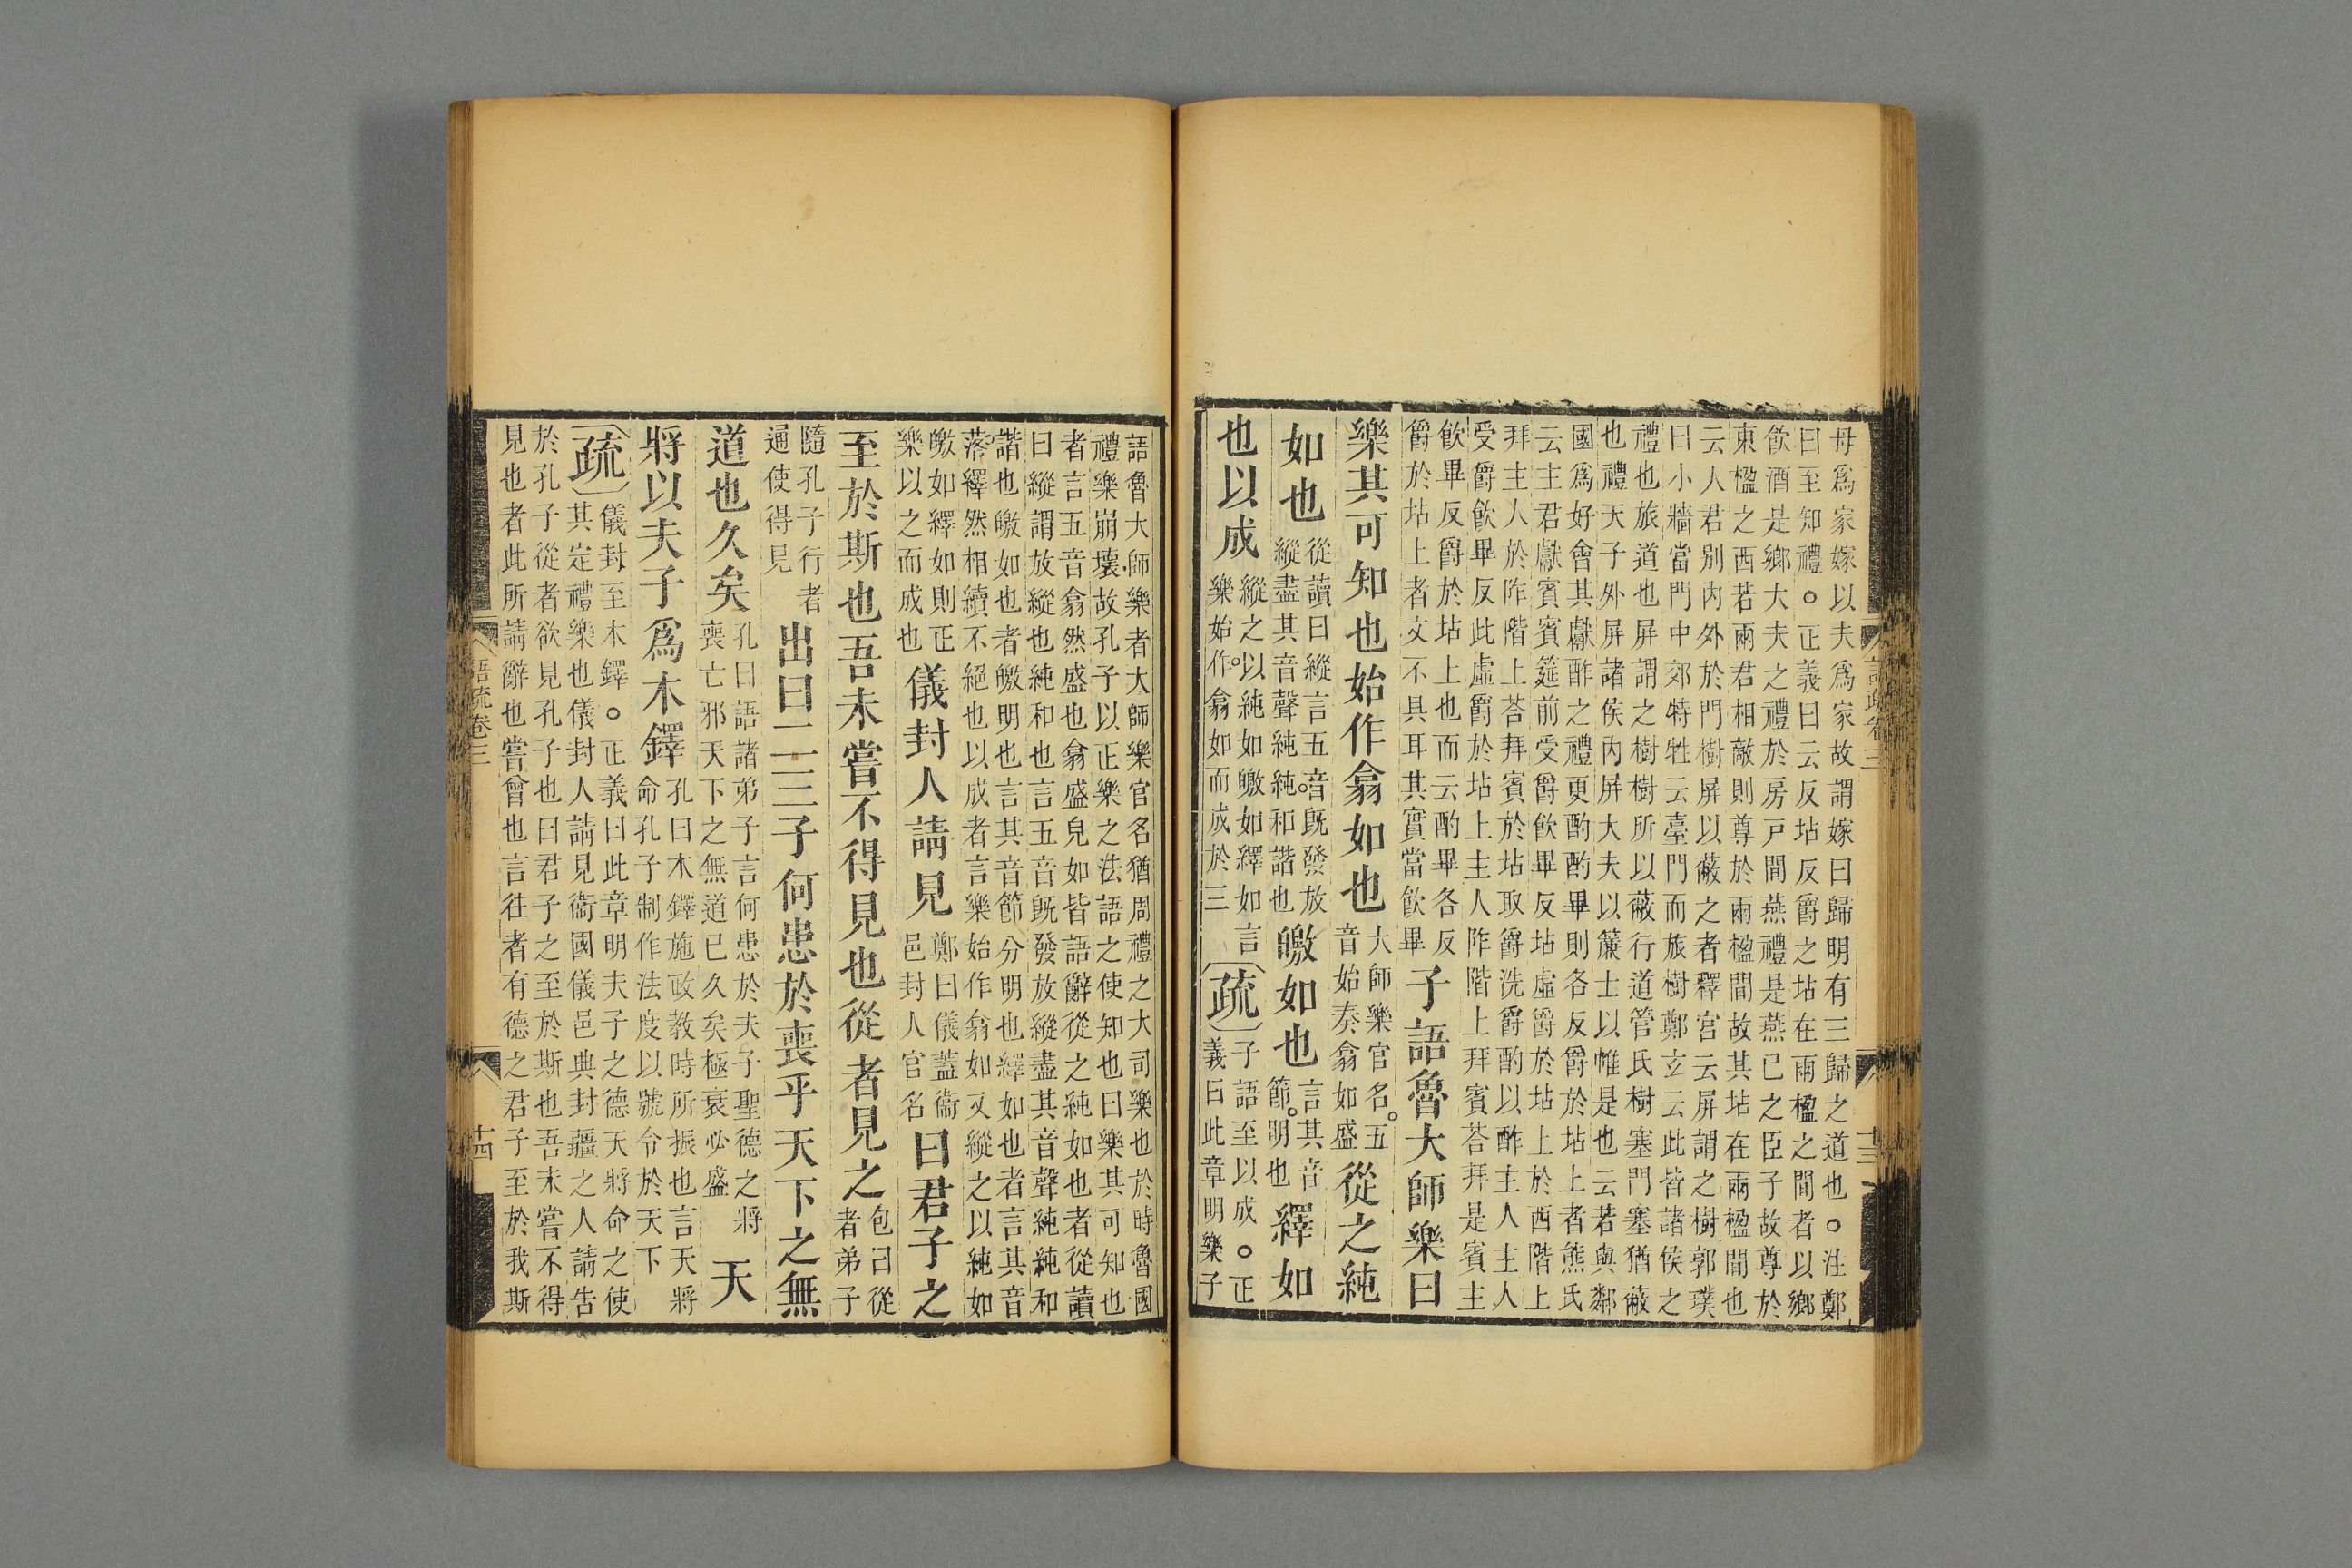 母爲家嫁以夫爲家故謂嫁曰歸明有三歸之道也○注鄭
曰至知禮○正義曰云反坫反爵之坫在兩楹之間者以鄉
飲酒是鄉大夫之禮於房戸間燕禮是燕已之臣子故尊於
東楹之西若兩君相敵則尊於兩楹間故其坫在兩楹間也
云人君别内外於門樹屏以蔽之者釋宫云屏謂之樹郭璞
曰小牆當門中郊特牲云臺門而旅樹鄭玄云此皆諸侯之
禮也旅道也屏謂之樹樹所以蔽行道管氏樹塞門塞猶蔽
也禮天子外屏諸侯内屏大夫以簾士以帷是也云若與鄰
國爲好會其獻酢之禮更酌酌畢則各反爵於坫上者熊氏
云主君獻賓賓筵前受爵飲畢反坫虛爵於坫上於西階上
拜主人於阼階上荅拜賓於坫取爵洗爵酌以酢主人主人
受爵飲畢反此虛爵於坫上主人阼階上拜賓荅拜是賓主
飲畢反爵於坫上也而云酌畢各反
爵於坫上者文不具耳其實當飲畢
子語魯大師樂曰
樂其可知也始作翕如也
大師樂官名五
音始奏翕如盛
從之純
如也
從讀曰縱言五音旣發放
縱盡其音聲純純和諧也
皦如也
言其音
節明也
繹如
也以成
縱之以純如皦如繹如言
樂始作翕如而成於三
疏
子語至以成○正
義曰此章明樂子
語魯大師樂者大師樂官名猶周禮之大司樂也於時魯國
禮樂崩壞故孔子以正樂之法語之使知也曰樂其可知也
者言五音翕然盛也翕盛皃如皆語辭從之純如也者從讀
曰縱謂放縱也純和也言五音旣發放縱盡其音聲純純和
諧也皦如也者皦明也言其音節分明也繹如也者言其音
落繹然相續不絕也以成者言樂始作翕如又縱之以純如
皦如繹如則正
樂以之而成也
儀封人請見
鄭曰儀蓋衞
邑封人官名
曰君子之
至於斯也吾未嘗不得見也從者見之
包曰從
者弟子
隨孔子行者
通使得見
出曰二三子何患於喪乎天下之無
道也久矣
孔曰語諸弟子言何患於夫子聖德之將
喪亡邪天下之無道已久矣極衰必盛
天
將以夫子爲木鐸
孔曰木鐸施政教時所振也言天將
命孔子制作法度以號令於天下
疏
儀封至木鐸○正義曰此章明夫子之德天將命之使
其定禮樂也儀封人請見衞國儀邑典封疆之人請告
於孔子從者欲見孔子也曰君子之至於斯也吾未嘗不得
見也者此所請辭也嘗曾也言往者有德之君子至於我斯
語疏卷三
十四